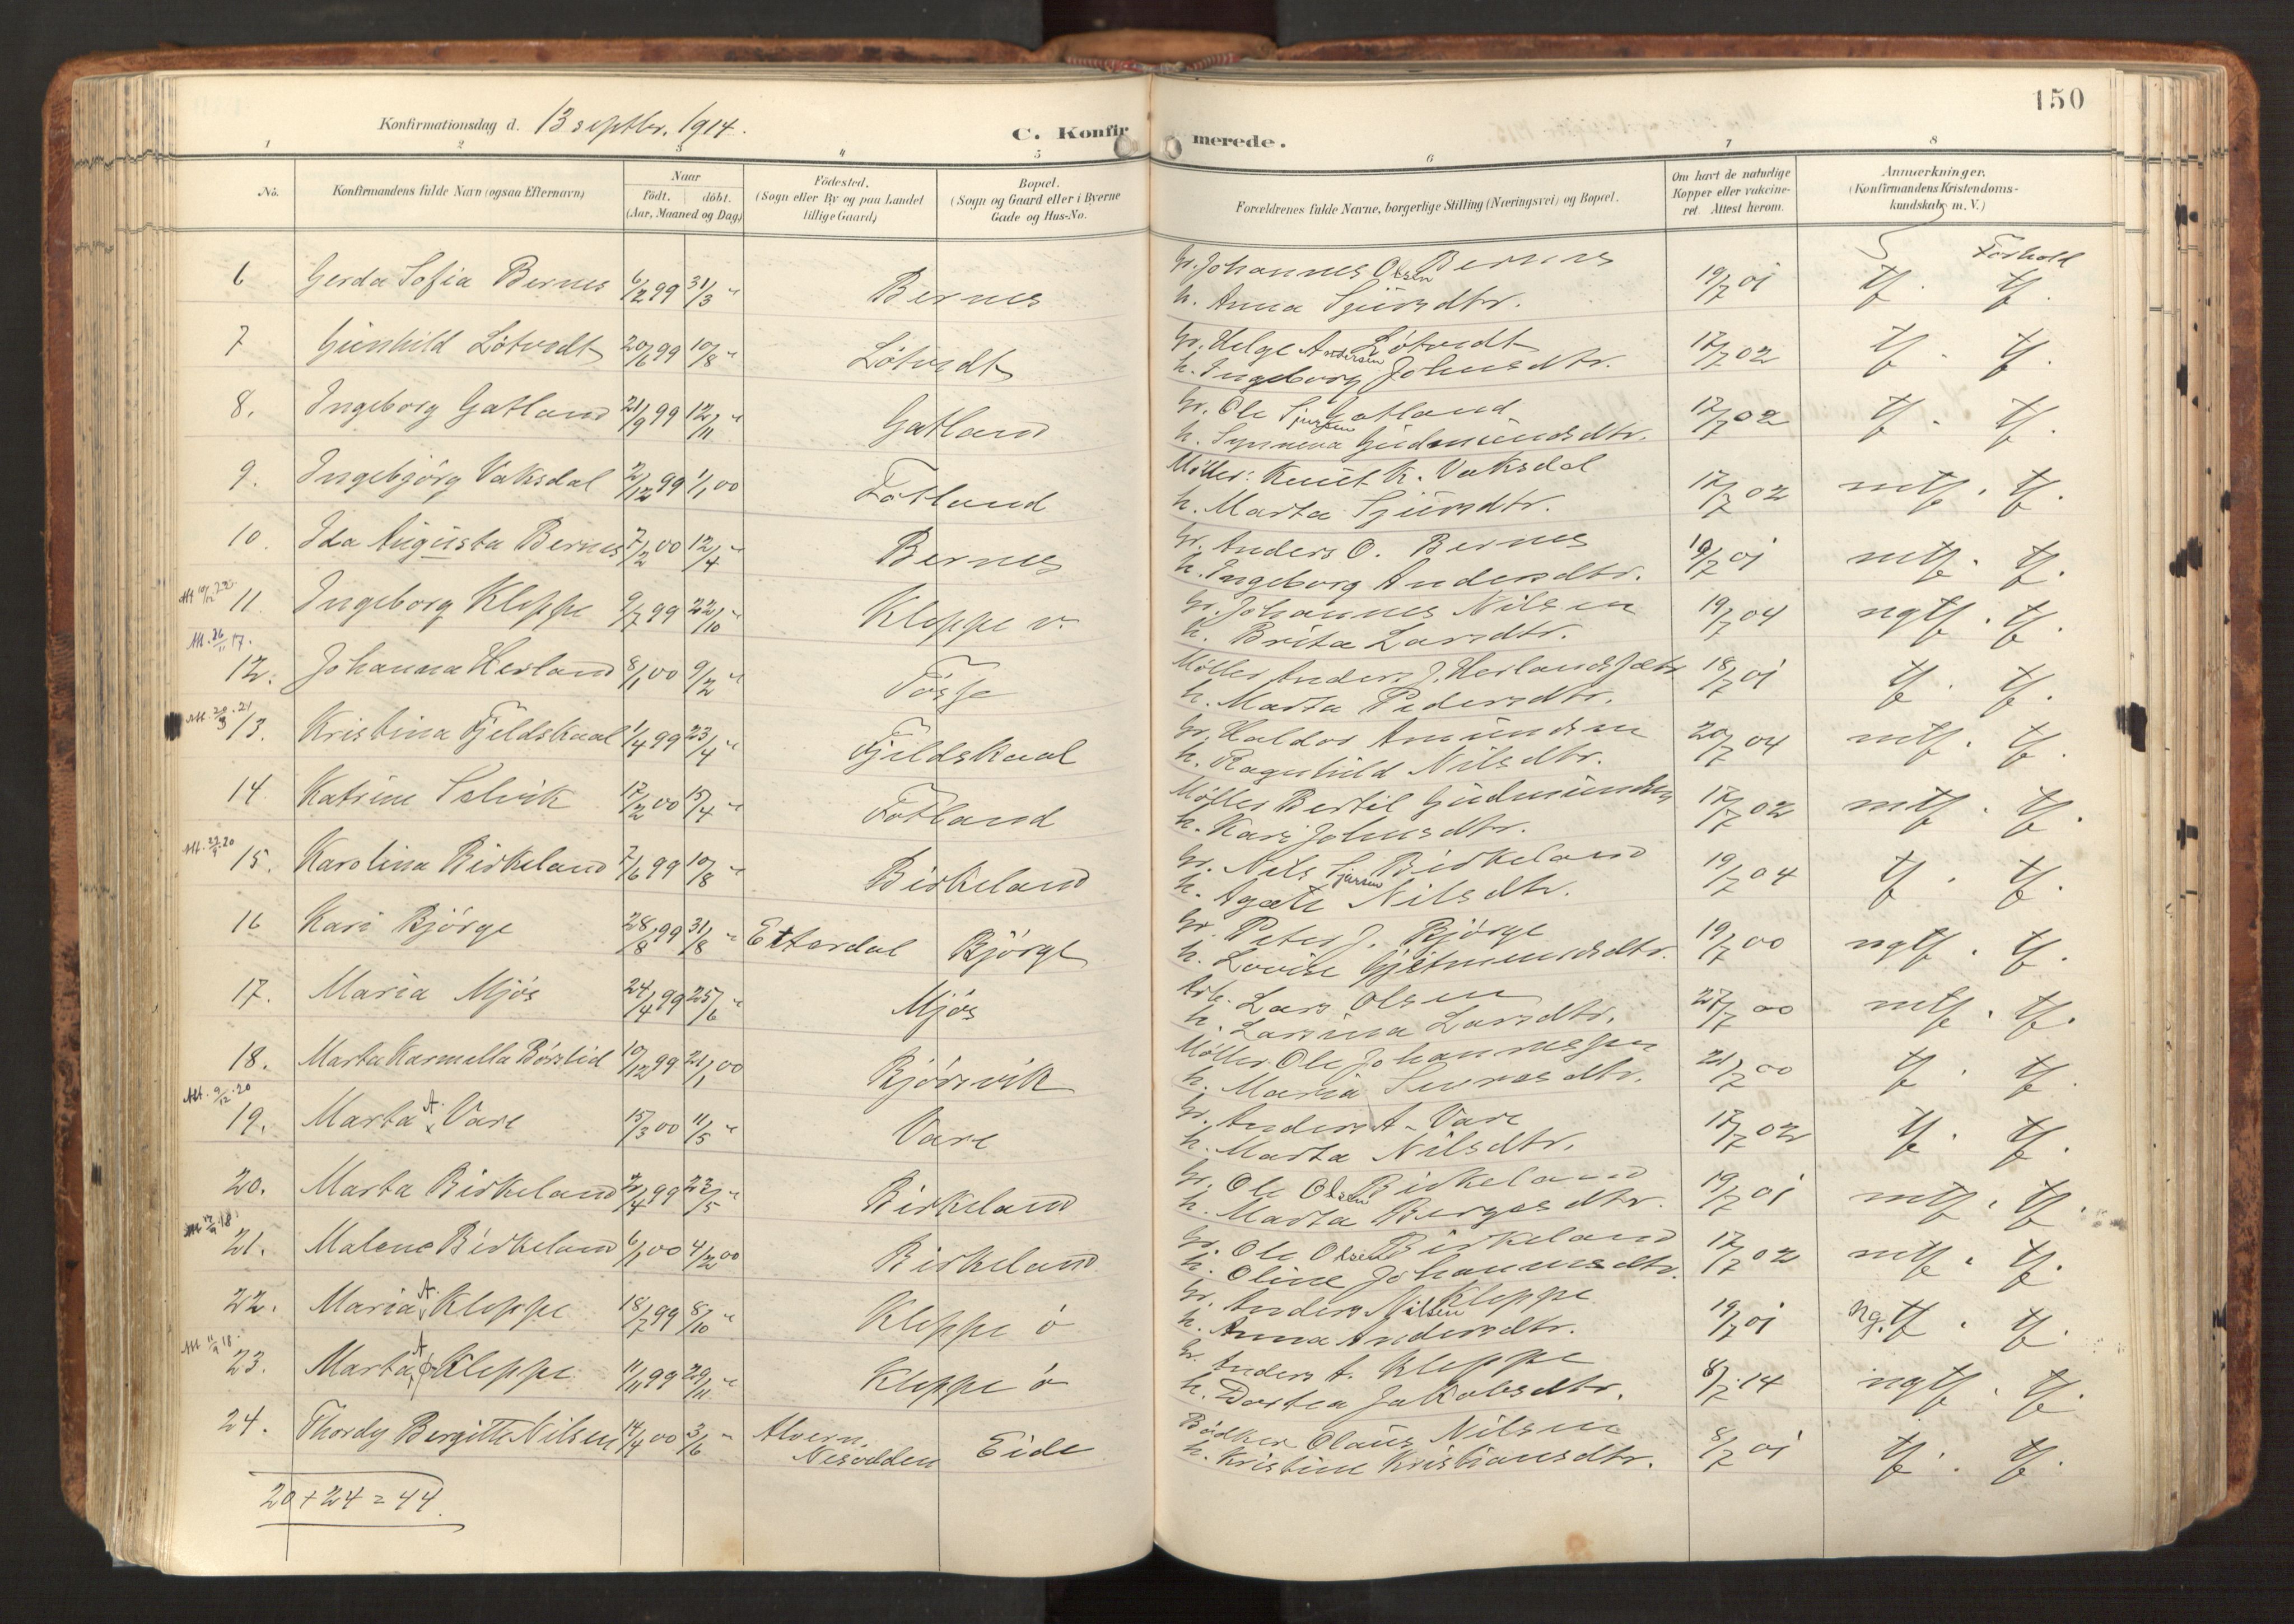 150
Konfirmationsdag d. 13 septbr. 1914.
C. Konfirmerede.
1 2 3 4 5 6 7 8
No. Konfirmandens fulde Navn (ogsaa Efternavn) Naar födt. döbt. (Aar, Maaned og Dag) Födested. (Sogn eller By og paa Landet tillige Gaard) Bopæl. (Sogn og Gaard eller i Byerne Gade og Hus-No. Forældrenes fulde Navne, borgerlige Stilling (Næringsvei) og Bopæl. Om havt de naturlige Kopper eller vakcineret. Attest herom. Anmærkninger. (Konfirmandens Kristendomskundskab m. V.)
Forhold
6 Gerda Sofia Bernes 6/2 99 31/3 " Bernes Gr. Johannes Olsen Bernes 19/7 01 tf. tf.
h. Anna Sjursdtr.
7 Gunhild Lötvedt 20/6 99 10/8 " Lötvedt Gr. Helge Andersen Lötvedt 17/7 02 tf. tf.
h. Ingeborg Johnsdtr.
8. Ingeborg Gatland 21/9 99 12/11 " Gatland Gr. Ole Sjursen Gatland 17/7 02 tf. tf.
h. Synneva Gudmundsdtr.
9. Ingebjörg Vaksdal 2/12 99 1/1 00 Fotland Möller: Knut K. Vaksdal 17/7 02 mtf. tf.
h. Marta Sjursdtr.
10. Ida Augusta Bernes 7/2 00 12/4 " Bernes Gr. Anders O. Bernes 19/7 01 mtf. tf.
h. Ingeborg Andersdtr.
Att 10/12 22
11. Ingeborg Kleppe 9/7 99 22/10 " Kleppe v. Gr. Johannes Nilsen 19/7 04 ngtf. tf.
h. Brita Larsdtr.
Att. 26/11 17.
12. Johanna Herland 8/1 00 9/2 " Fosse Möller Anders J. Herlandsæter 18/7 01 tf. tf.
h. Marta Pedersdtr.
Att. 20/3 21
13. Kristina Fjeldskaal 1/4 99 23/4 " Fjeldskaal Gr. Haldor Amundsen 20/7 04 mtf. tf.
h. Ragnhild Nilsdtr.
14. Katrine Selvik 17/2 00 15/4 " Fotland Möller Bertil Gudmundsen 17/7 02 mtf. tf.
h. Kari Johnsdtr.
Att. 20
15. Karolina Birkeland 7/6 99 10/8 " Birkeland Gr. Nils Sjursen Birkeland 19/7 04 tf. tf.
h. Agate Nilsdtr.
16 Kari Björge 28/8 99 31/8 " Etterdal Björge Gr. Peter J. Björge 19/7 00 ngtf. tf.
h. Lovise Gjetmundsdtr.
17. Maria Mjös 24/4 99 25/6 " Mjös Arb. Lars Olsen 27/7 00 mtf. tf.
h. Larsina Larsdtr.
18. Marta Karmella Börslid 10/12 99 21/1 00 Björsvik Möller Ole Johannessen 21/7 00 tf. tf.
h. Maria Sivresdtr.
Att. 9/12 20
19. Marta A. Vare 15/3 00 11/5 " Vare Gr. Anders A. Vare 17/7 02 tf. tf.
h. Marta Nilsdtr.
20. Marta Birkeland 2/4 99 22/5 " Birkeland Gr. Ole Olsen Birkeland 19/7 01 mtf. tf.
h. Marta Bergesdtr.
18
21. Malene Birkeland 6/1 00 4/2 00 Birkeland Gr. Ole Olsen Birkeland 17/7 02 mtf. tf.
h. Oline Johannesdtr.
22. Maria A. Kleppe 18/7 99 8/10 " Kleppe ö Gr. Anders Nilsen Kleppe 19/7 01 Ng. tf. tf.
h. Anna Andersdtr.
Att 11/9 18
23. Marta A Kleppe 11/11 99 29/11 " Kleppe ö Gr. Anders A. Kleppe 8/7 14 ngtf. tf.
h. Dortea Jakobsdtr.
24. Thordy Bergitte Nilsen 14/4 00 3/6 " Alvern, Nesodden Eide Bödker Olaus Nilsen 8/7 01 tf. tf.
h. Kristine Kristiansdtr.
20 + 24 = 44